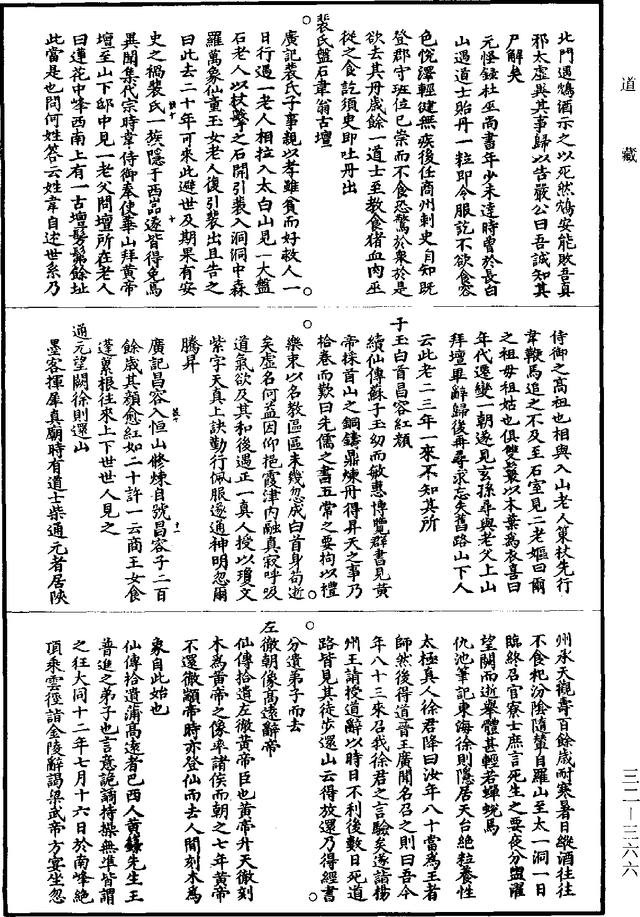 道藏
北門遇鴆酒示之以死然鴆安能敗吾真
邪太虛與其事歸以告嚴公曰吾誠知其
尸解矣
元怪錄杜巫尚書年少未達時曾於長白
山遇道士貽丹一粒即令服訖不欲食容
色悅澤輕健無疾後任商州刺史自知既
登郡守班位已崇而不食恐驚於衆於是
欲去其丹歲餘一道士至教食猪血肉巫
從之食訖須吏即吐丹出
裴氏盤石韋翁古壇
廣記裴氏子事親以孝雖貧而好救人一
日行遇一老人相拉入太白山見一大盤
石老人以杖擊之石開引裴入洞洞中森
羅萬象仙童玉女老人復引裴出且告之
曰此去二十年可來此避世及期果有安
史之禍裴氏一族隱于西嵓遂皆得免焉
異聞集代宗時韋侍御奉使華山拜黃帝
壇至山下邸中見一老父問壇所在老人
曰蓮花中峰西南上有一古壇髣髴餘址
此當是也問何姓答云姓韋自述世系乃
侍御之高祖也相與入山老人策杖先行
韋鞭馬追之不及至石室見二老嫗曰爾
之祖母祖姑也俱雙鬟以木葉爲衣喜曰
年代遷變一朝遂見玄孫尋與老父上山
拜壇畢辭歸後再尋求忘矣舊路山下人
云此老二三年一來不知其所
子玉白首昌容紅顏
續仙傳蘇子玉幼而敏惠博覽群書見黃
帝採首山之銅鑄鼎煉丹得昇天之事乃
捨卷而歎曰先儒之書五常之要拘以禮
樂束以名教區區未幾忽成白首身苟逝
矣虛名何益因仰挹霞津內融真寂呼吸
道氣欲及其和後遇正一真人授以瓊文
紫字天真上訣勤行佩服遂通神明忽爾
騰昇
廣記昌容入恒山修煉自號昌容子二百
餘歲其顏愈紅如二十許一云商王女食
蓬蔂根往來上下世世人見之
通元望闕徐則還山
墨客揮犀真廟時有道士柴通元者居陝
州承天觀壽百餘歲耐寒暑日縱酒往往
不食祀汾陰隨輦自羅山至太一洞一日
臨終召官寮士庶言死生之要從分盥濯
望闕而逝舉體甚輕若蟬蛻焉
仇池筆記東海徐則隱居天台絶粒養性
太極真人徐君降曰汝年八十當爲王者
師然後得道晉王廣聞名召之則曰吾今
年八十三來召我徐君之言驗矣遂詣楊
州王請授道辭以時日不利後數日死道
路皆見其徒步還山云得放還乃得經書
分遺弟子而去
左徹朝像高遠辭帝
仙傳拾遺左徹黃帝臣也黃帝升天徹刻
木爲黃帝之像率諸侯而朝之七年黃帝
不還徹顓帝時亦登仙而去人間刻木爲
象自此始也
仙傳拾遺蒲高遠者巴西人黄鍾先生王
普進之弟子也言意詭譎持操無準皆謂
之狂大同十二年七月十六日於南峰絶
頂乘雲徑詣金陵辭謁梁武帝方宴坐忽
三二—三六六